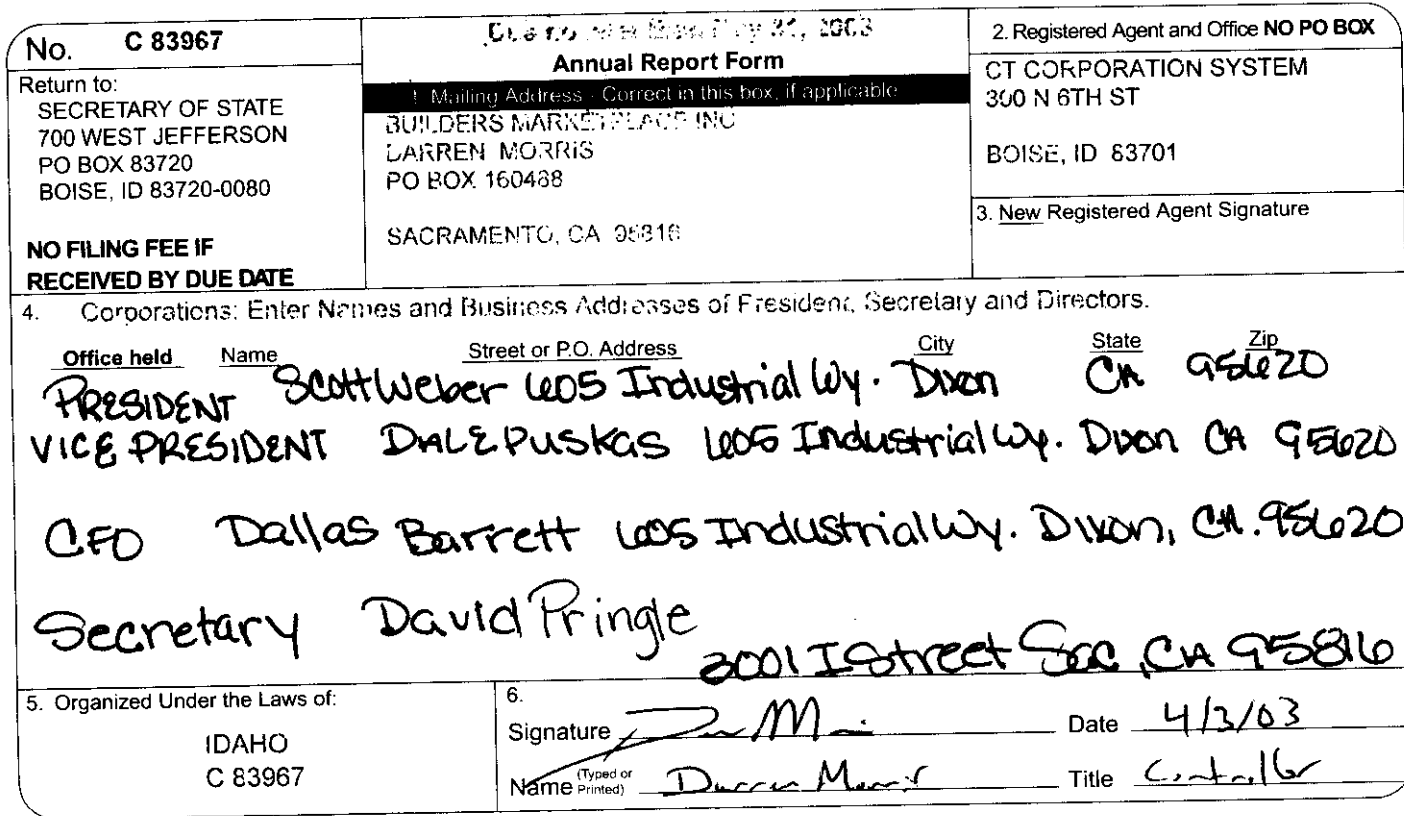 No. C 83967
Return to:
SECRETARY OF STATE
700 WEST JEFFERSON
PO BOX 83720
BOISE, ID 83720-0080
NO FILING FEE IF
RECEIVED BY DUE DATE
Due no later than May 31, 2003
Annual Report Form
1. Mailing Address - Correct in this box, if applicable
BUILDERS MARKETPLACE INC
DARREN MORRIS
PO BOX 160488
SACRAMENTO, CA 95816
2. Registered Agent and Office NO PO BOX
CT CORPORATION SYSTEM
300 N 6TH ST
BOISE, ID 83701
3. New Registered Agent Signature
4. Corporations: Enter Names and Business Addresses of President, Secretary and Directors.
Office held Name Street or P.O. Address City State Zip
PRESIDENT Scott Weber 605 Industrial Wy. Dixon CA 95620
VICE PRESIDENT DALE PUSKAS 605 Industrial Wy. Dixon CA 95620
CFO Dallas Barrett 605 Industrial Wy. Dixon, CA. 95620
Secretary David Pringle
3001 I Street Sac, CA 95816
5. Organized Under the Laws of:
IDAHO
C 83967
6.
Signature Date 4/3/03
Name (Typed or Printed) Darren Morris Title Controller